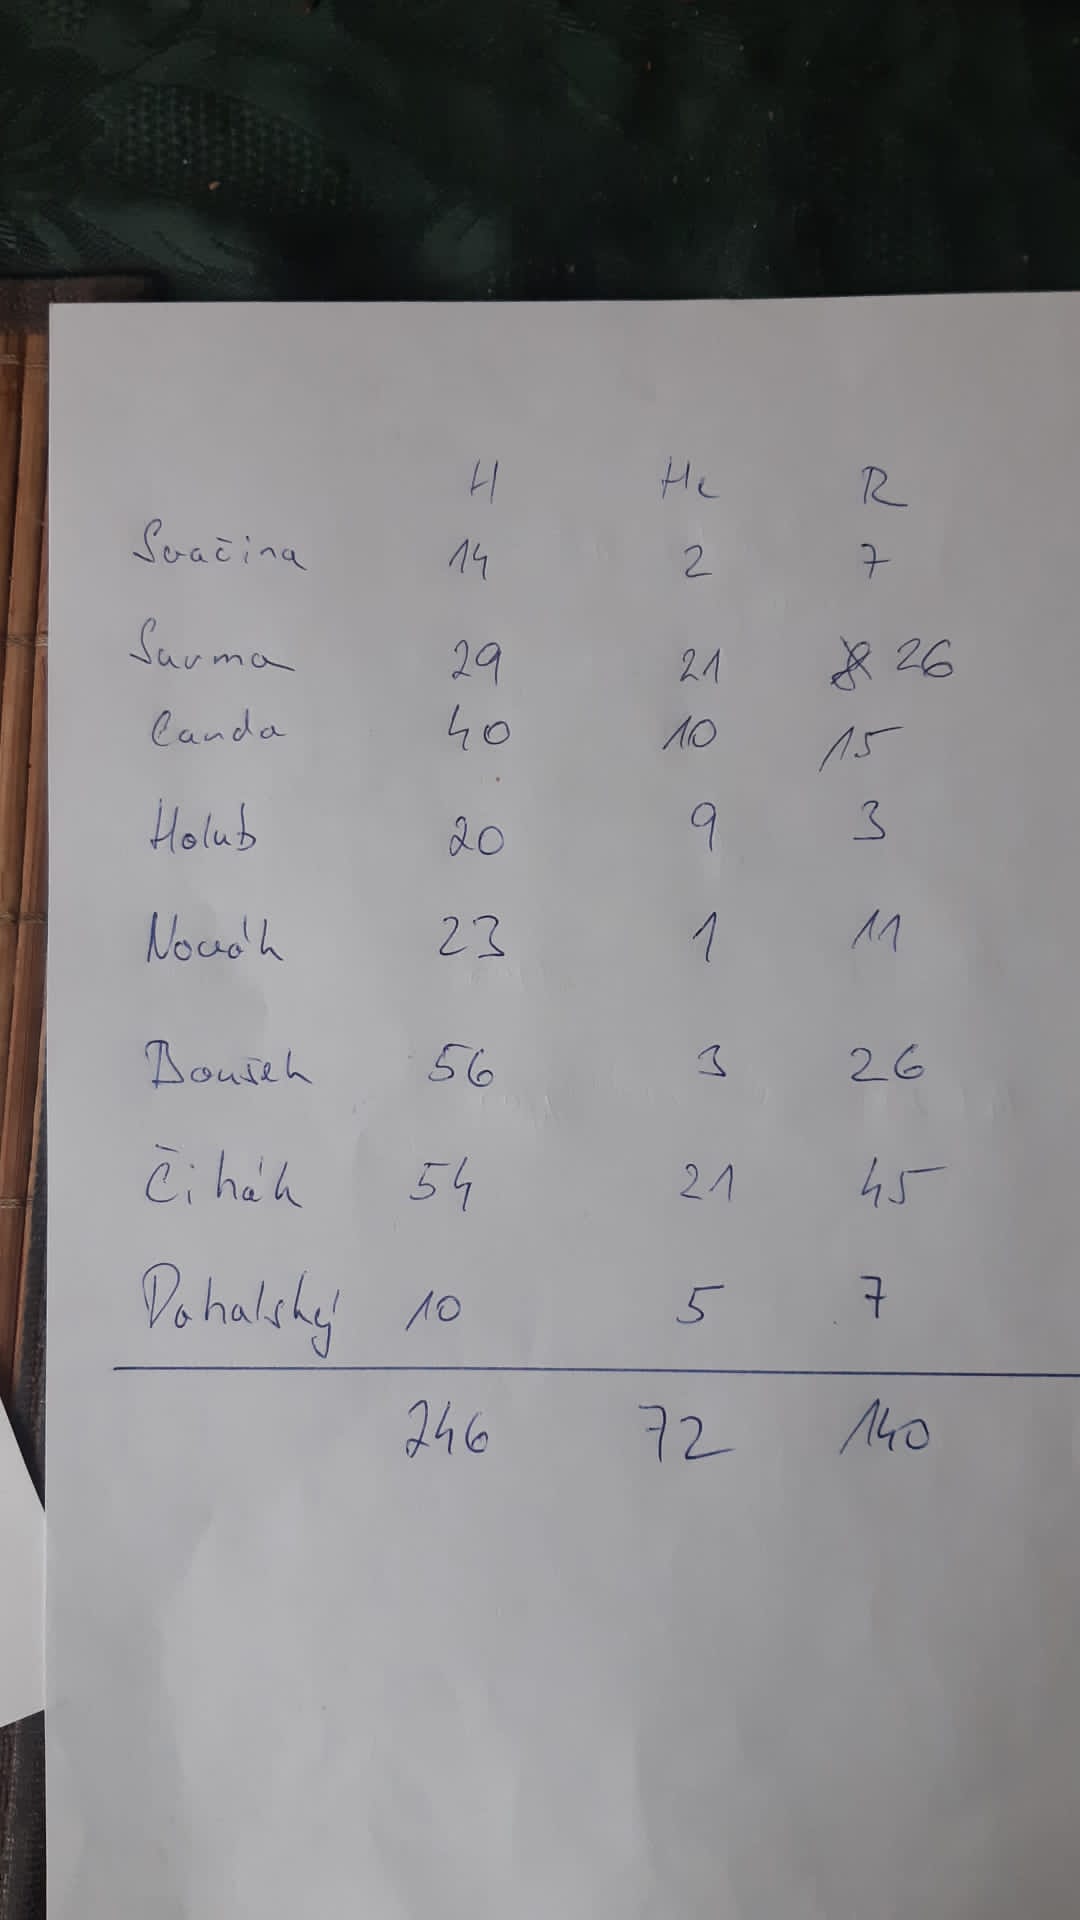 H He R
Svačina 14 2 7
Surma 29 21 26
Canda 40 10 15
Holub 20 9 3
Novák 23 1 11
Boušek 56 3 26
Čihák 54 21 45
Dohalský 10 5 7
246 72 140